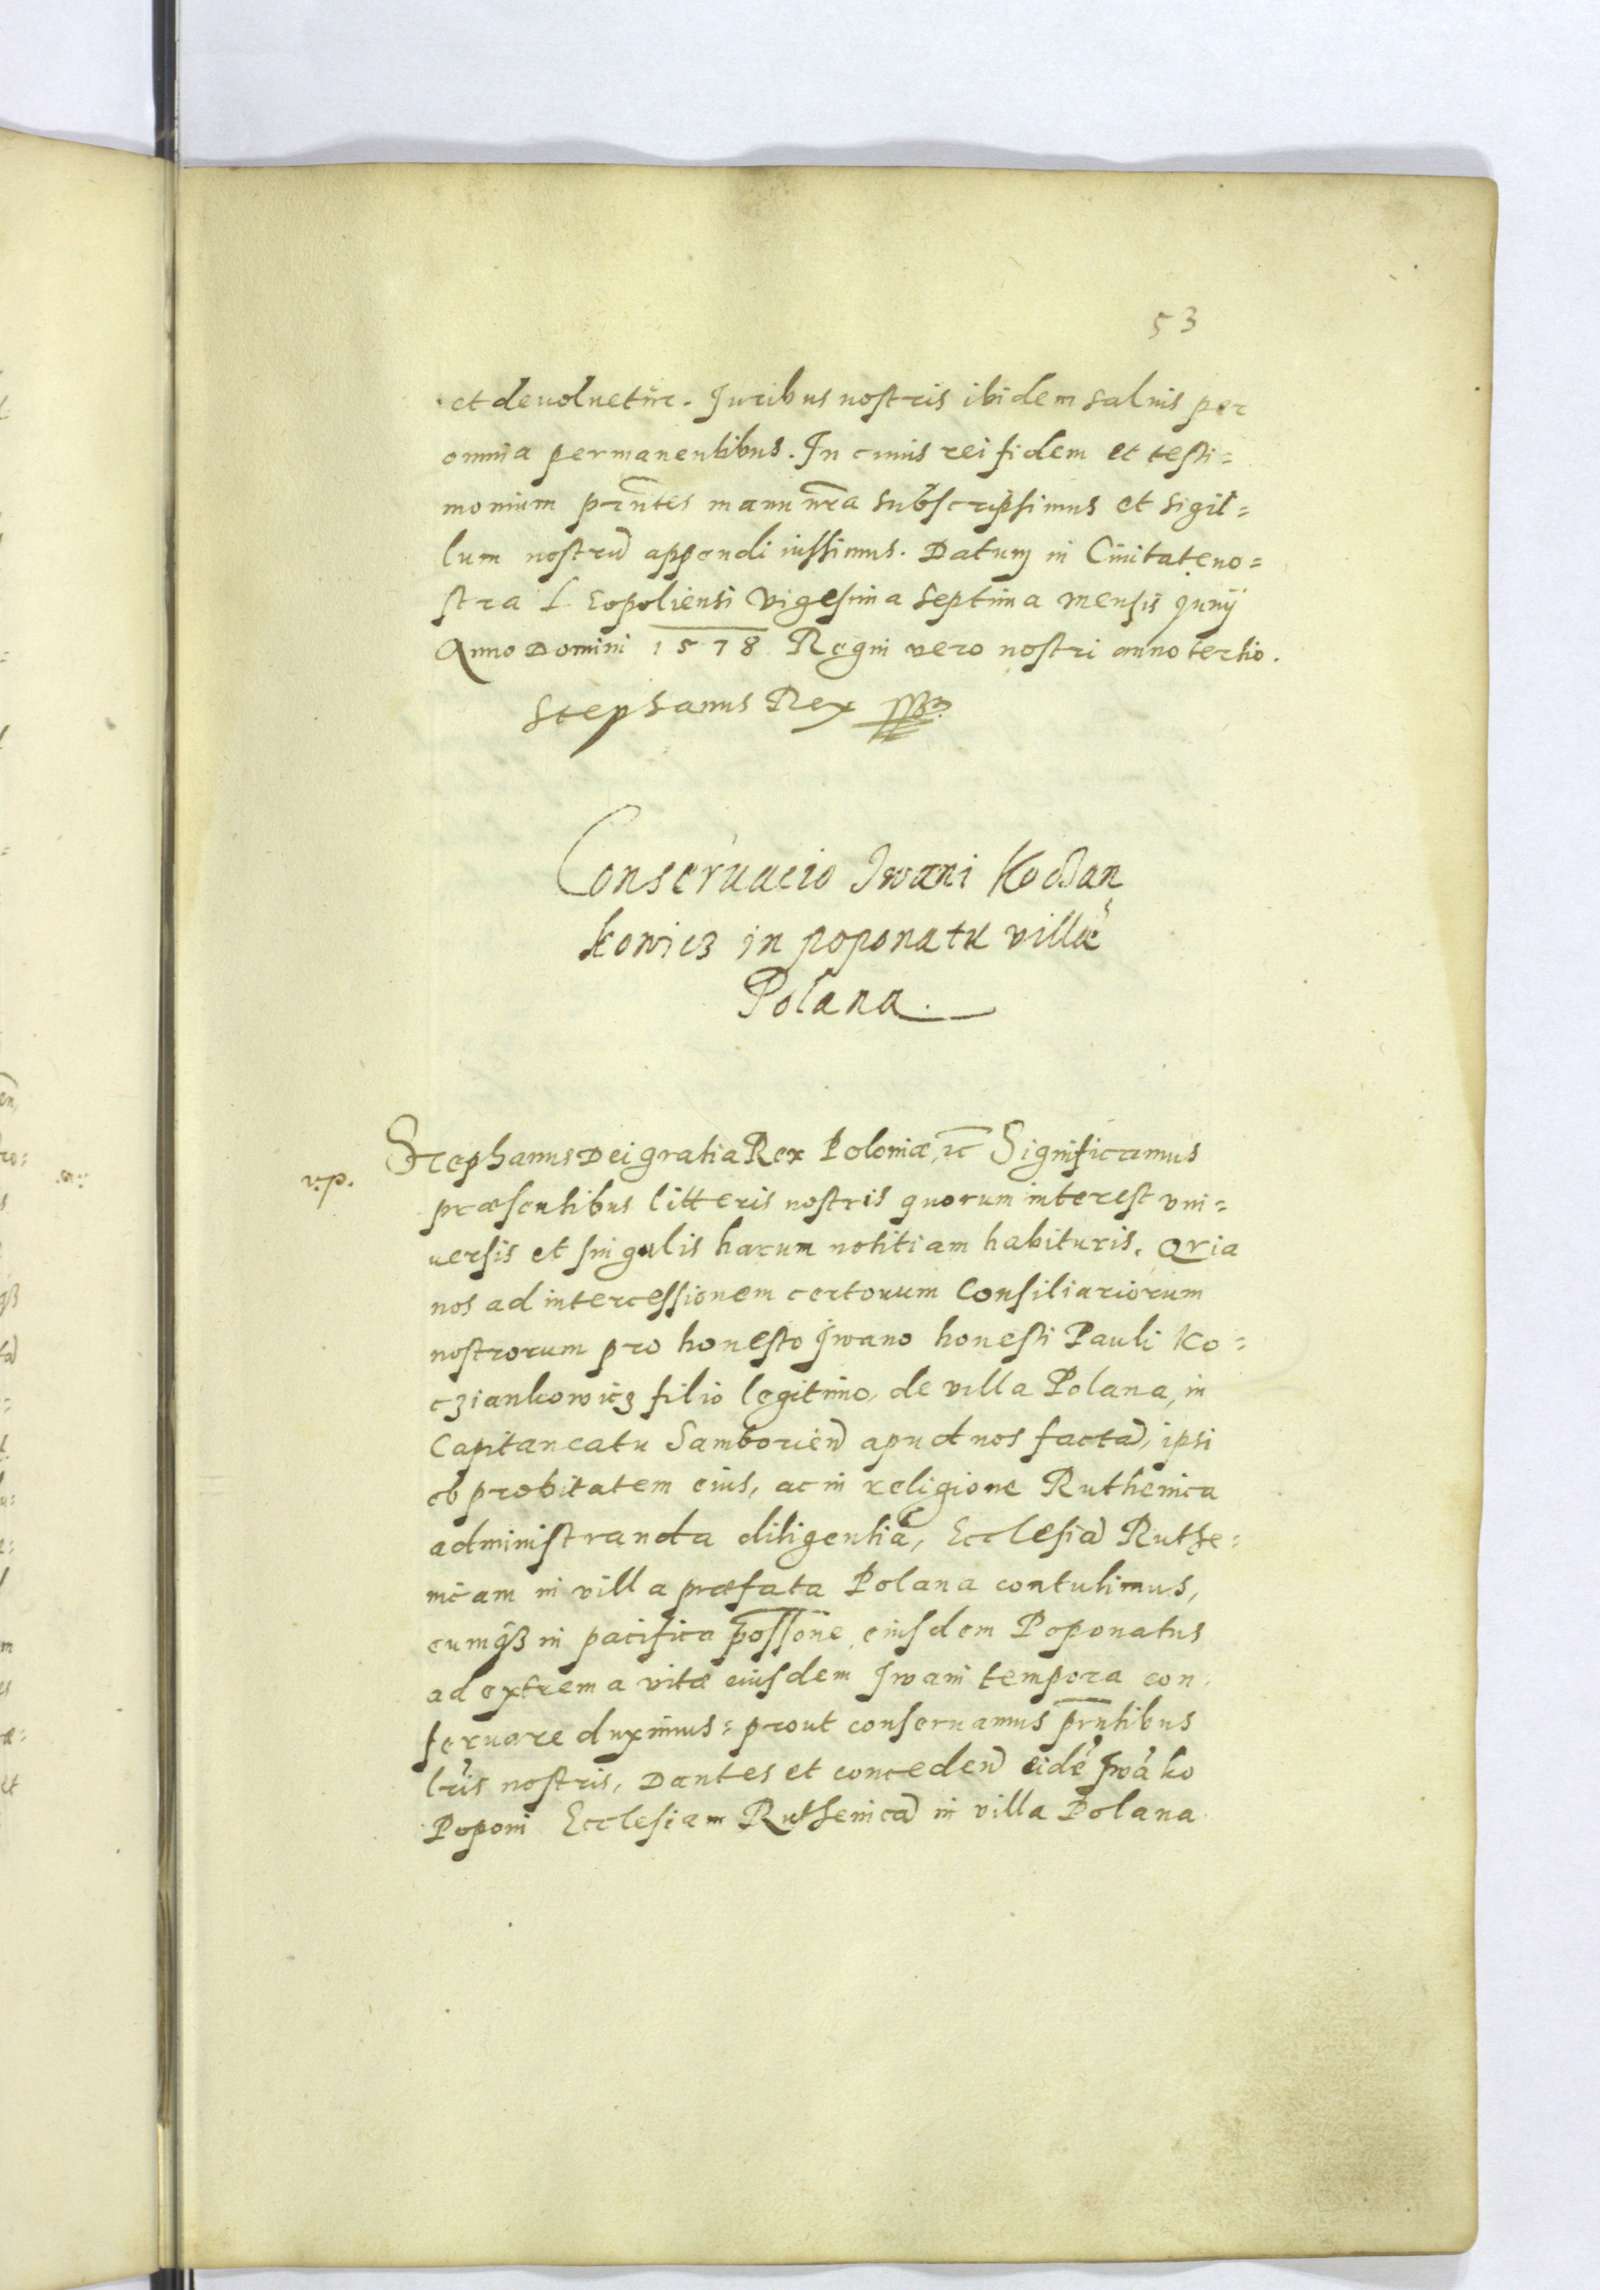 53
et devoluetur. Juribus nostris ibidem salvis per
omnia permanentibus. In cuius rei fidem et testi=
monium prntes manu nra subscripsimus et sigil=
lum nostrū appendi iussimus. Datum in Civitate no=
stra Leopoliensi vigesima septima mensis Junij
Anno Domini 1578 Regni vero nostri anno tertio.
Stephanus Rex
Conservacio Iwani Koczan
kowicz in poponatu villæ
Polana.
v.p.
Stephanus Dei gratia Rex Poloniæ, etc Significamus
præsentibus litteris nostris quorum interest vni=
versis et singulis harum notitiam habituris. Quia
nos ad intercessionem certorum Consiliariorum
nostrorum pro honesto Iwano honesti Pauli Ko=
cziankowicz filio legitimo, de villa Polana, in
Capitaneatu Samborien̄ apud nos factā, ipsi
ob probitatem eius, ac in religione Ruthenica
administranda diligentiā, Ecclesiā Ruthe=
nicam in villa præfata Polana contulimus,
eumq3 in pacifica possione eiusdem Poponatus
ad extrema vitæ eiusdem Iwani tempora con
servare duximus: prout conservamus prntibus
lris nostris, Dantes et conceden̄ eidē Iwāko
Poponi Ecclesiam Ruthenicā in villa Polana